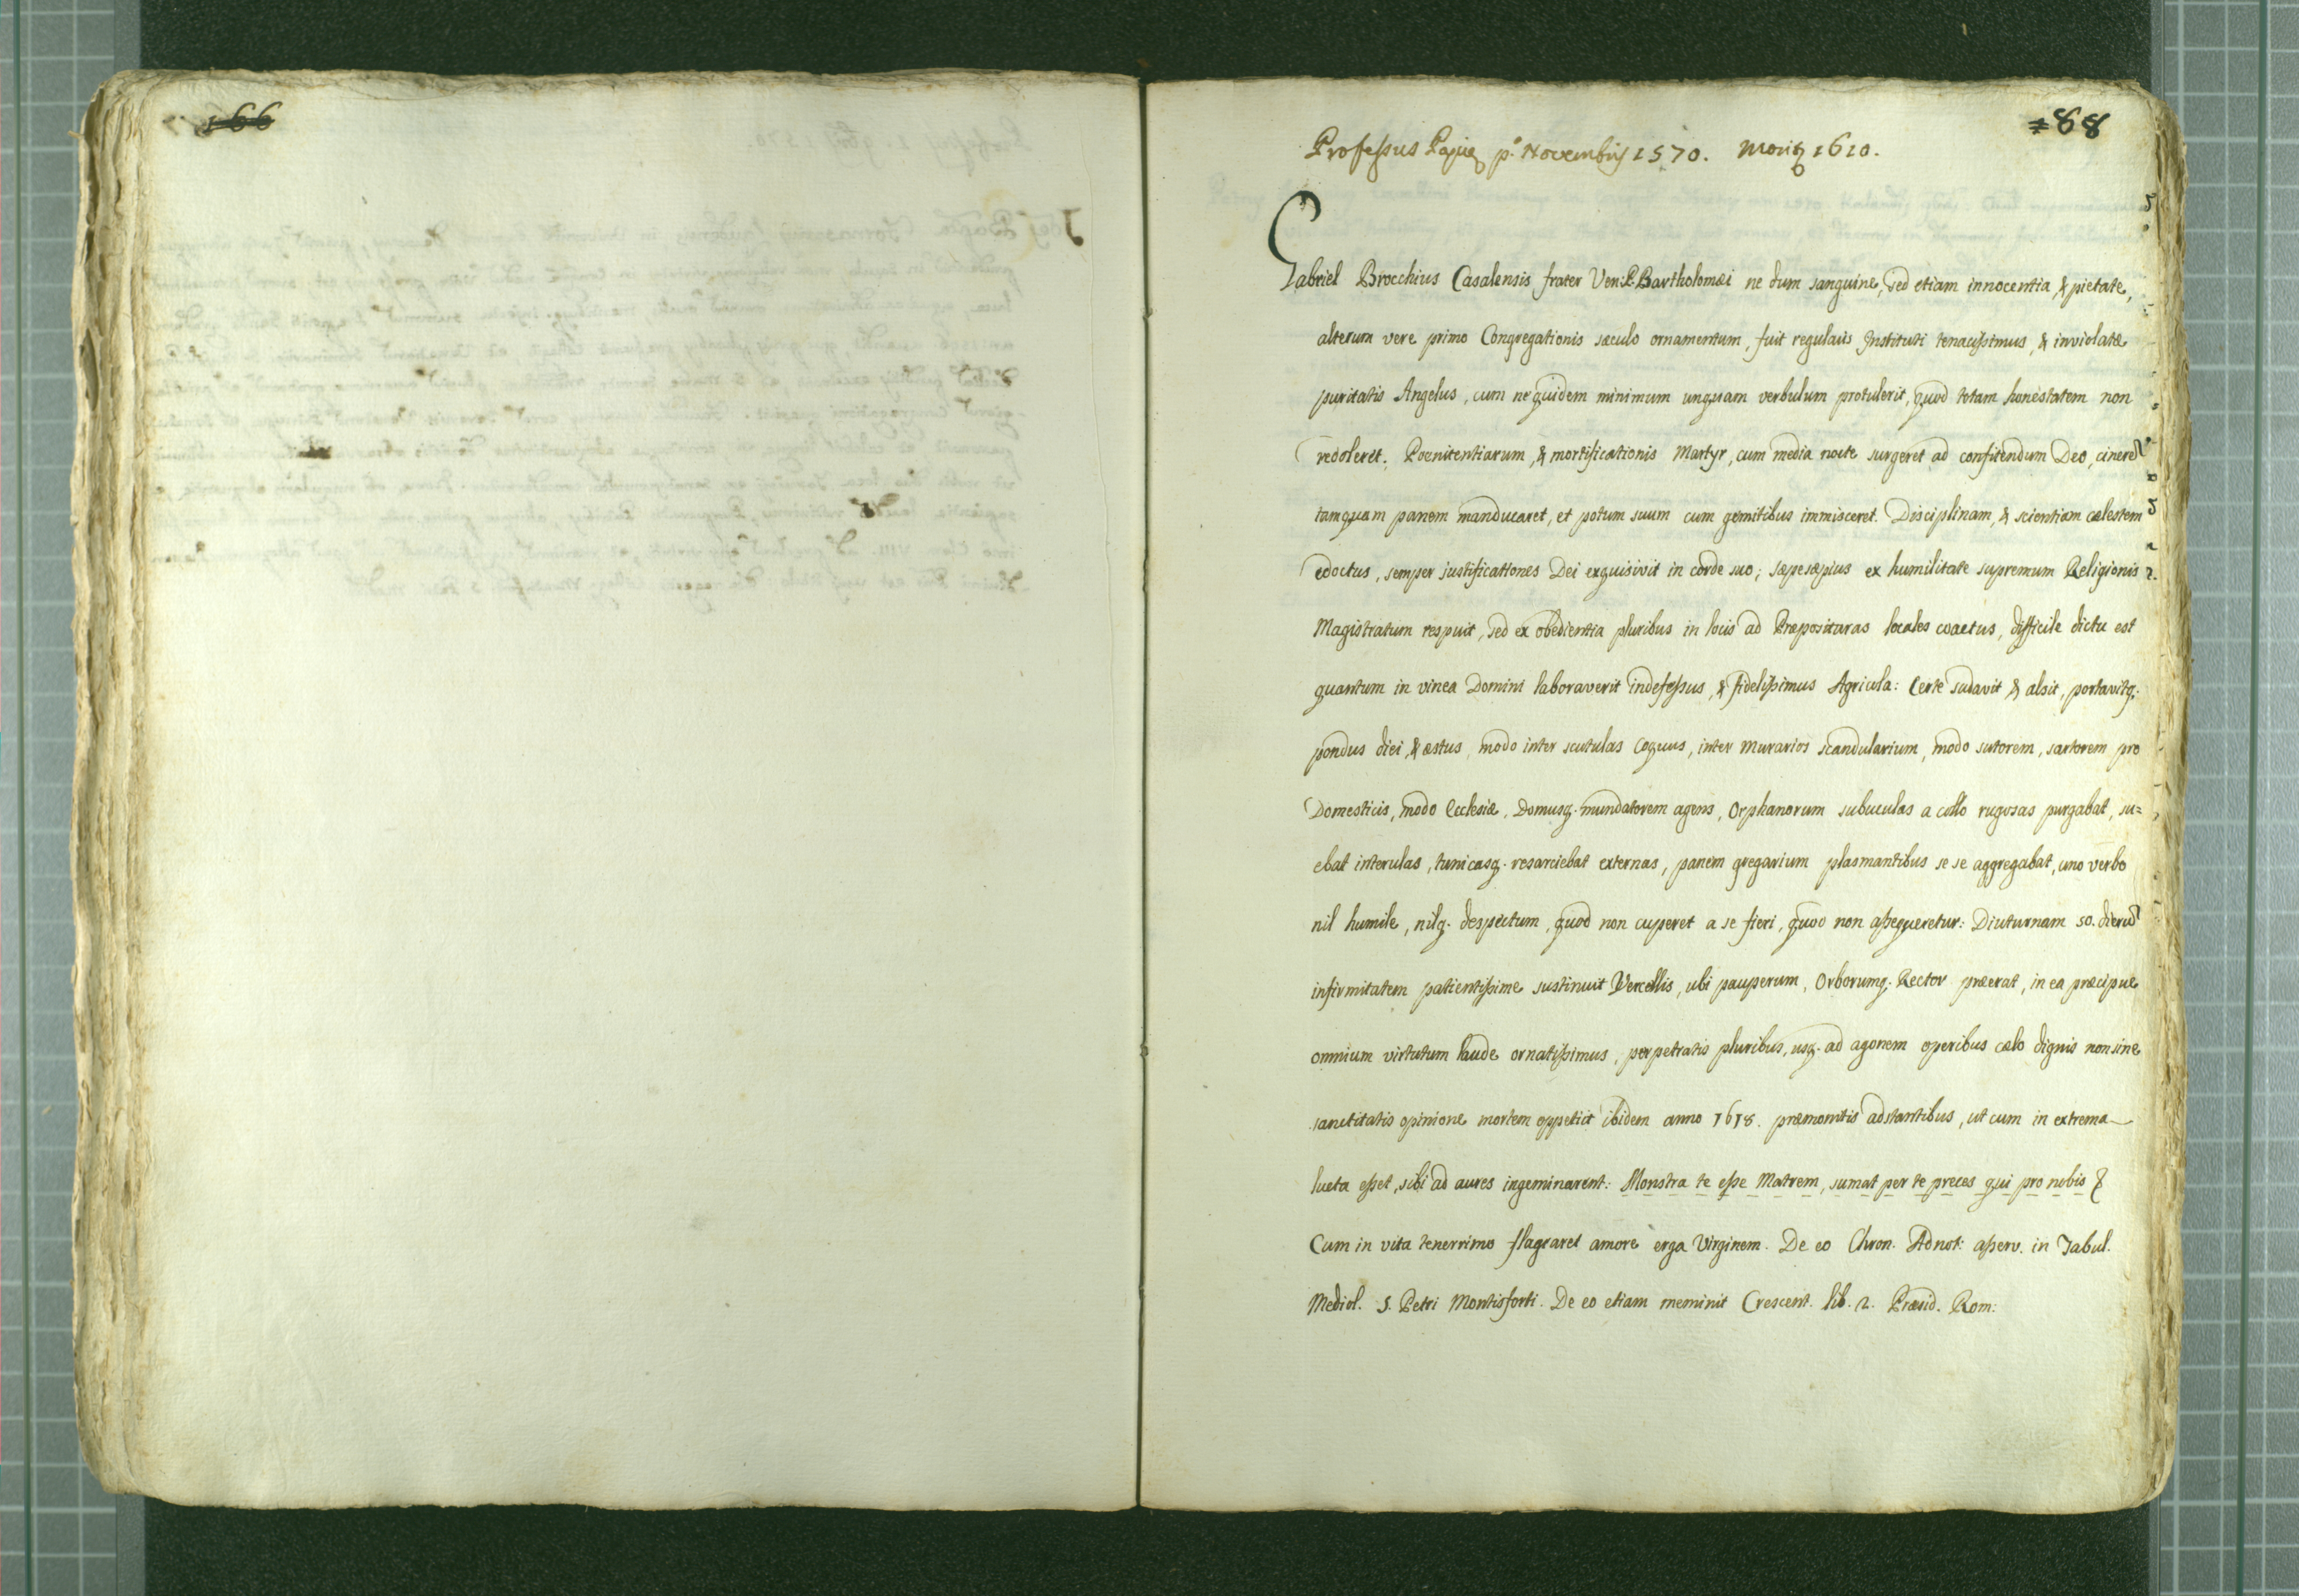 166
88
Professus Papię p.º Novembrij 1570. Moritꝫ 1610.
Gabriel Brocchius Casalensis frater Ven: P. Bartholomæi ne dum sanguine, sed etiam innocentia, & pietate,
alterum vere primo Congregationis sæculo ornamentum, fuit regularis Instituti tenacissimus, & inviolatæ
puritatis Angelus, cum ne quidem minimum unquam verbulum protulerit, quod totam honestatem non
redoleret. Poenitentiarum, & mortificationis Martyr, cum media nocte surgeret ad confitendum Deo, cinerē
tamquam panem manducaret, et potum suum cum gemitibus immisceret. Disciplinam, & scientiam cælestem
edoctus, semper justificationes Dei exquisivit in corde suo; sæpesæpius ex humilitate supremum Religionis
Magistratum respuit, sed ex obedientia pluribus in locis ad Præposituras locales coactus, difficile dictu est
quantum in vinea Domini laboraverit indefessus, & fidelissimus Agricola: Certe sudavit & alsit, portavitq.
pondus diei, & æstus, modo inter scutulas Coquus, inter Murarios scandularium, modo sutorem, sartorem pro
Domesticis, modo Ecclesiæ, Domusq. mundatorem agens, Orphanorum subuculas a collo rugosas purgabat, su=
ebat interulas, tunicasq. resarciebat externas, panem gregarium plasmantibus se se aggregabat, uno verbo
nil humile, nilq. despectum, quod non cuperet a se fieri, quod non assequeretur: Diuturnam 50. dierū
infirmitatem patientissime sustinuit Vercellis, ubi pauperum, Orborumq. Rector præerat, in ea præcipue
omnium virtutum laude ornatissimus, perpetratis pluribus, usq. ad agonem operibus cælo dignis non sine
sanctitatis opinione mortem oppetiit ibidem anno 1618. præmonitis adstantibus, ut cum in extrema
lucta esset, sibi ad aures ingeminarent: Monstra te esse Matrem, sumat per te preces qui pro nobis &
Cum in vita tenerrimo flagraret amore erga Virginem. De eo Chron. Adnot: asserv. in Tabul.
Mediol. S. Petri Montisforti. De eo etiam meminit Crescent. lib. 2. Præsid. Rom: